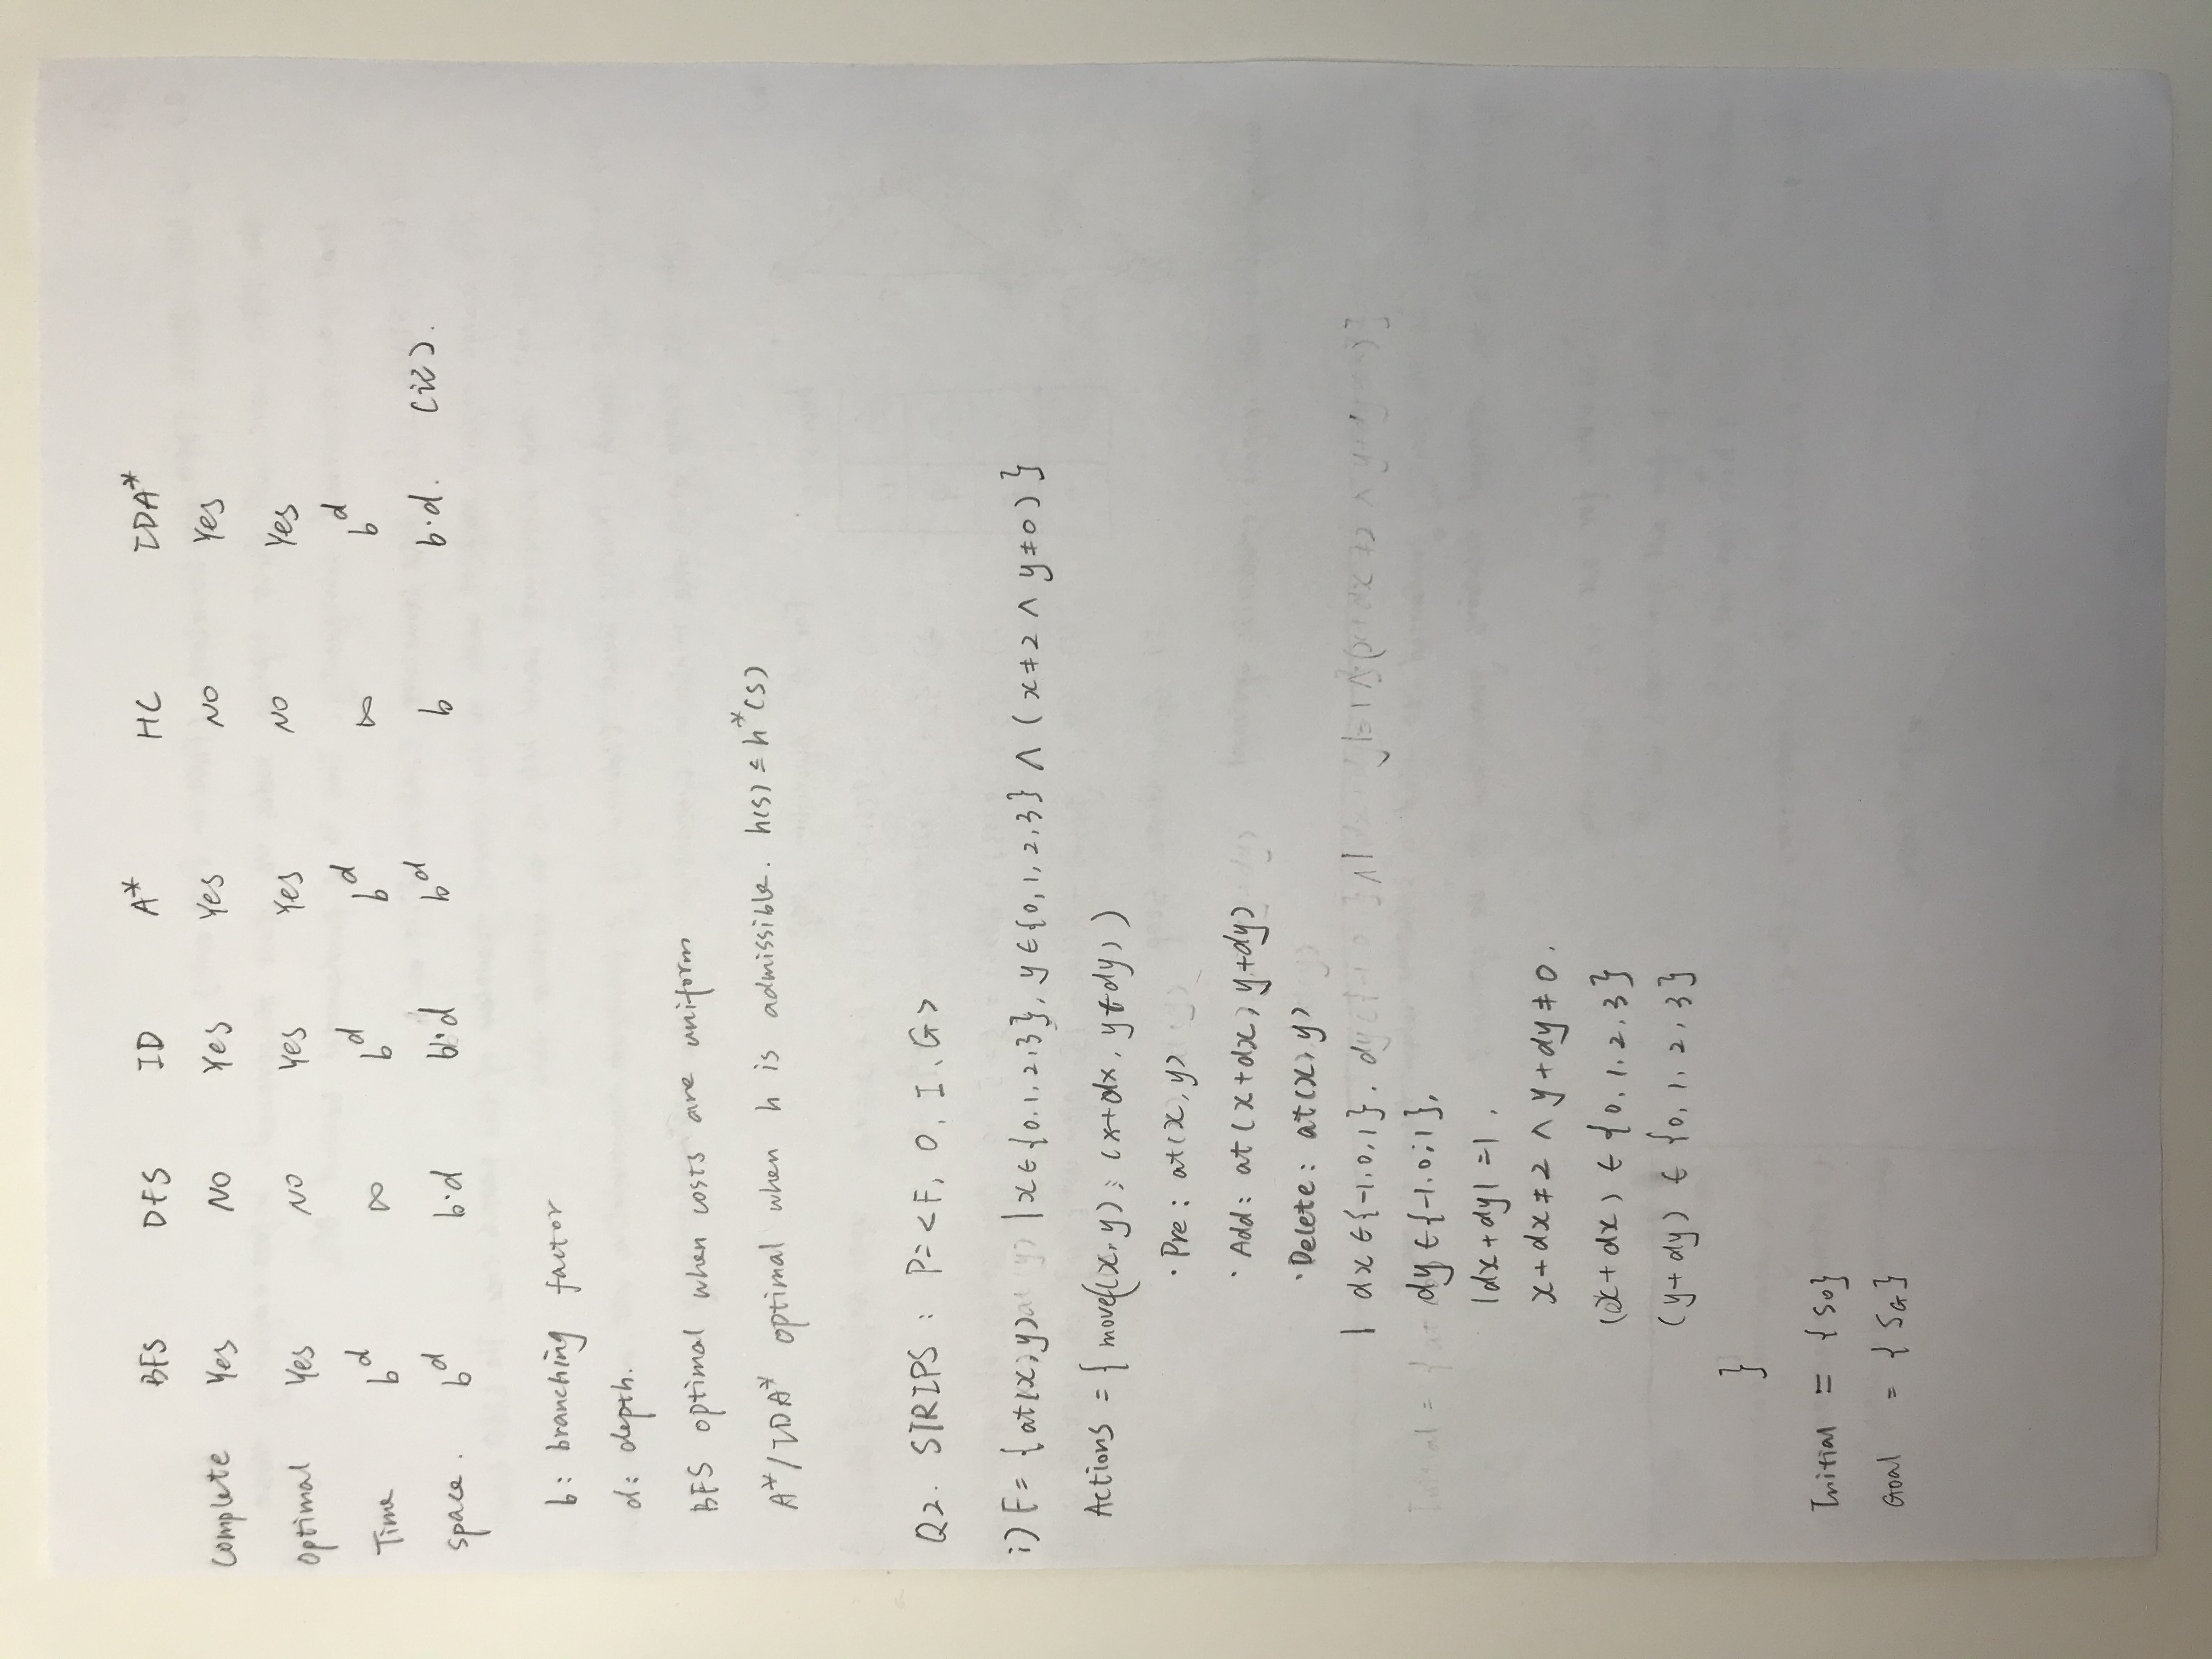 BFS DFS ID A* HC IDA*
Complete Yes NO Yes Yes NO Yes
Optimal Yes NO Yes Yes NO Yes
Time b^d ∞ b^d b^d ∞ b^d
Space. b^d b·d b·d b^d b b·d. (记).
b: branching factor
d: depth.
BFS optimal when costs are uniform
A*/IDA* optimal when h is admissible. h(s) ≤ h*(s)
Q2. STRIPS : P=<F, O, I, G>
i) F= {at(x,y) | x∈{0,1,2,3}, y∈{0,1,2,3} ∧ (x≠2 ∧ y≠0)}
Actions = { move((x,y); (x+dx, y+dy))
· Pre: at(x,y)
· Add: at(x+dx, y+dy)
· Delete: at(x,y)
| dx∈{-1,0,1}.
dy∈{-1,0,1},
|dx+dy|=1,
x+dx≠2 ∧ y+dy≠0.
(x+dx) ∈ {0,1,2,3}
(y+dy) ∈ {0,1,2,3}
}
Initial = {S0}
Goal = {SG}